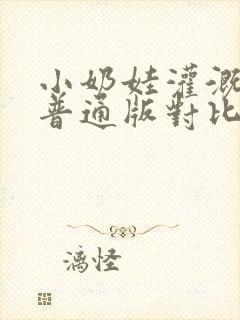 小奶娃灌溉
普通版對比
漓怪